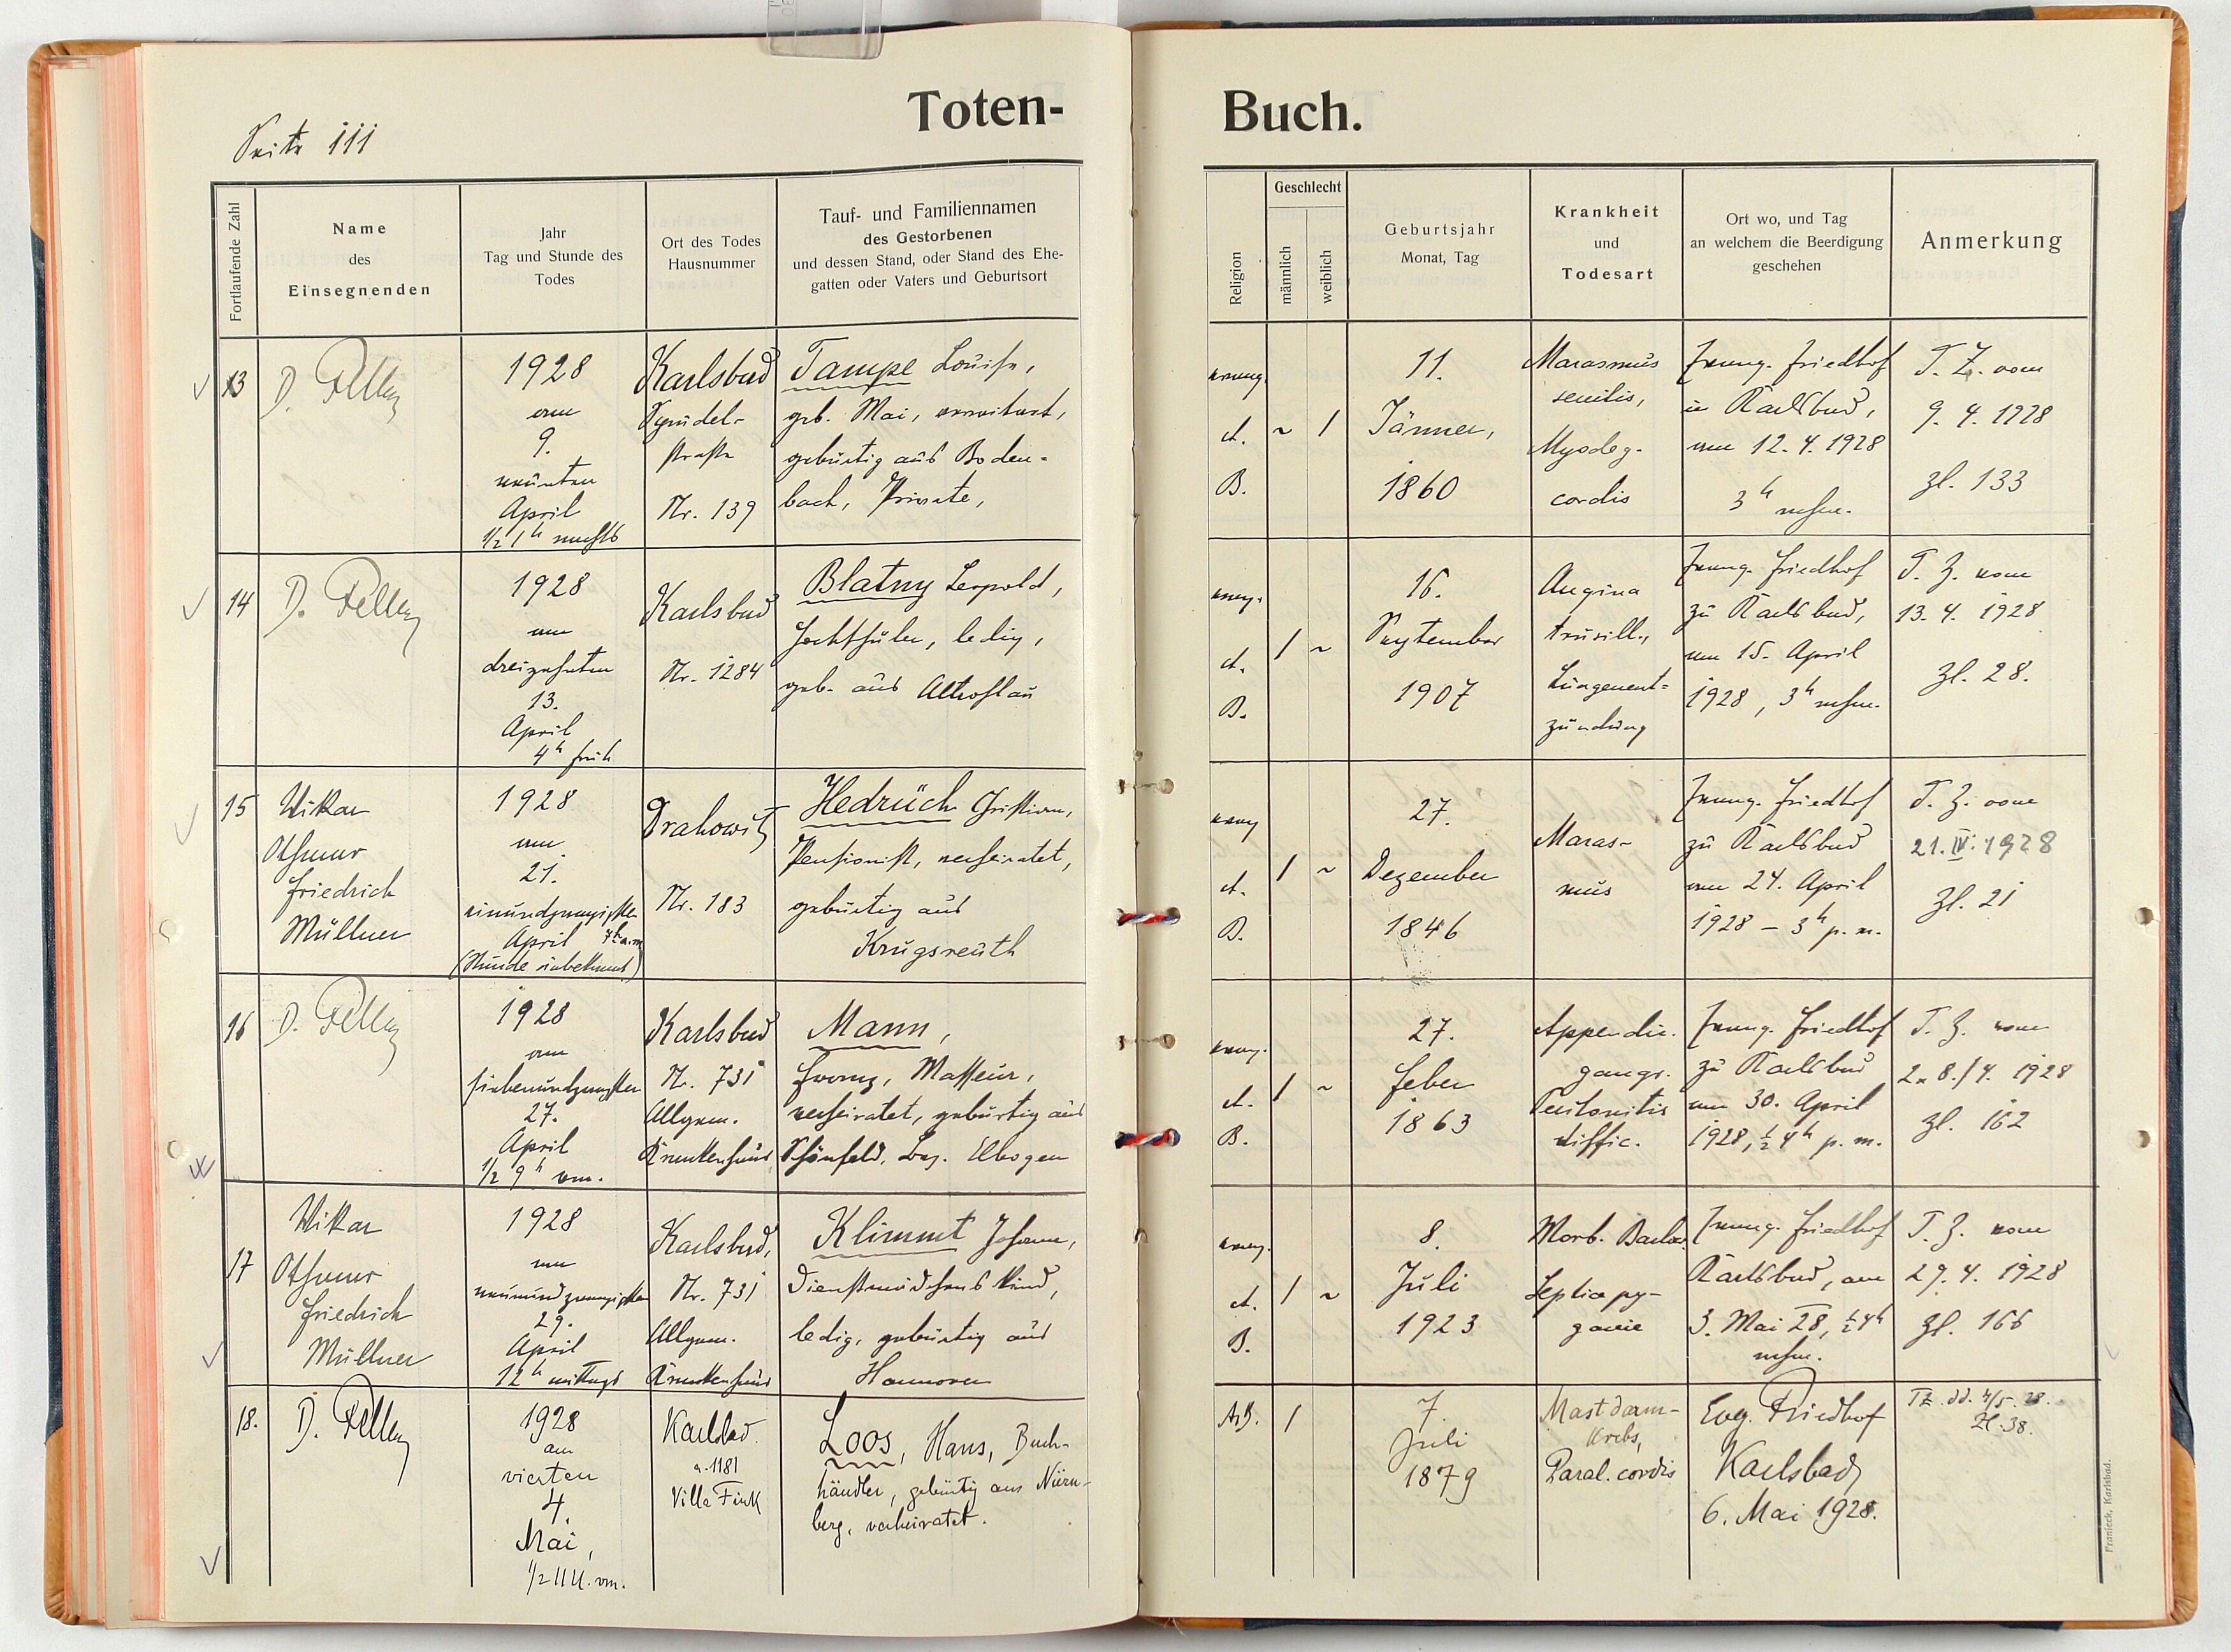 Toten-
Buch.
Seite 111
Fortlaufende Zahl
Name
des
Einsegnenden
Jahr
Tag und Stunde des
Todes
Ort des Todes
Hausnummer
Tauf- und Familiennamen
des Gestorbenen
und dessen Stand, oder Stand des Ehe-
gatten oder Vaters und Geburtsort
Religion
Geschlecht
männlich
weiblich
Geburtsjahr
Monat, Tag
Krankheit
und
Todesart
Ort wo, und Tag
an welchem die Beerdigung
geschehen
Anmerkung
13
1928
am
9.
neunten
April
1/2 1h nachts
Karlsbad
Sprudel-
straße
Nr. 139
Tampe Louise,
geb. Mai, verwitwet,
gebürtig aus Boden-
bach, Private,
evang.
A.
B.
~ 1
11.
Jänner,
1860
Marasmus
senilis,
Myodeg.
cordis
Evang. Friedhof
in Karlsbad,
am 12. 4. 1928
3h nachm.
T. Z. vom
9. 4. 1928
Zl. 133
14
1928
am
dreizehnten
13.
April
4h früh
Karlsbad
Nr. 1284
Blatny Leopold,
ledig,
geb. aus Altrohlau
evang.
A.
B.
1 ~
16.
September
1907
Angina
Lungenent-
zündung
Evang. Friedhof
zu Karlsbad,
am 15. April
1928, 3h nachm.
T. Z. vom
13. 4. 1928
Zl. 28.
15
Vikar
Othmar
Friedrich
Müllner
1928
am
21.
einundzwanzigsten
April 4h a.m
(Stunde unbekannt)
Drahowitz
Nr. 183
Hedrüch Christian,
Pensionist, verheiratet,
gebürtig aus
Krugsreuth
evang
A.
B.
1 ~
27.
Dezember
1846
Maras-
mus
Evang. Friedhof
zu Karlsbad
am 24. April
1928 – 3h p. m.
T. Z. vom
21. IV. 1928
Zl. 21
16
1928
am
siebenundzwanzigsten
27.
April
1/2 9h vm.
Karlsbad
Nr. 731
Allgem.
Krankenhaus
Mann,
Franz, Masseur,
verheiratet, gebürtig aus
Schönfeld, Bez. Elbogen
evang.
A.
B.
1 ~
27.
Feber
1863
Appendic.
gangr.
Peritonitis
diffic.
Evang. Friedhof
zu Karlsbad
am 30. April
1928, 1/2 4h p. m.
T. Z. vom
28./4. 1928
Zl. 162
17
Vikar
Othmar
Friedrich
Müllner
1928
am
neunundzwanzigsten
29.
April
12h mittags
Karlsbad,
Nr. 731
Allgem.
Krankenhaus
Klimmt Johann,
Dienstmädchens Kind,
ledig, gebürtig aus
Hannover
evang.
A.
B.
1 ~
8.
Juli
1923
Morb.
Septicopy-
Evang. Friedhof
Karlsbad, am
3. Mai 28, 1/2 4h
nachm.
T. Z. vom
29. 4. 1928
Zl. 166
18.
1928
am
vierten
4.
Mai,
1/2 11 U. vm.
Karlsbad
1181
Villa Fink
Loos, Hans, Buch-
händler, gebürtig aus Nürn-
berg, verheiratet.
AB.
1
7.
Juli
1879
Mastdarm-
krebs,
Paral. cordis
Evg. Friedhof
Karlsbad,
6. Mai 1928.
TZ. dd. 4/5. 28.
Zl. 38.
Franieck, Karlsbad.